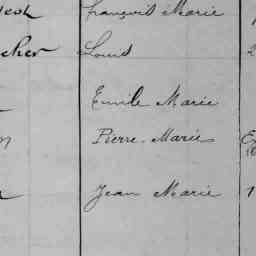 François Marie
cher Louis
Emile Marie
Pierre-Marie
Jean Marie 1